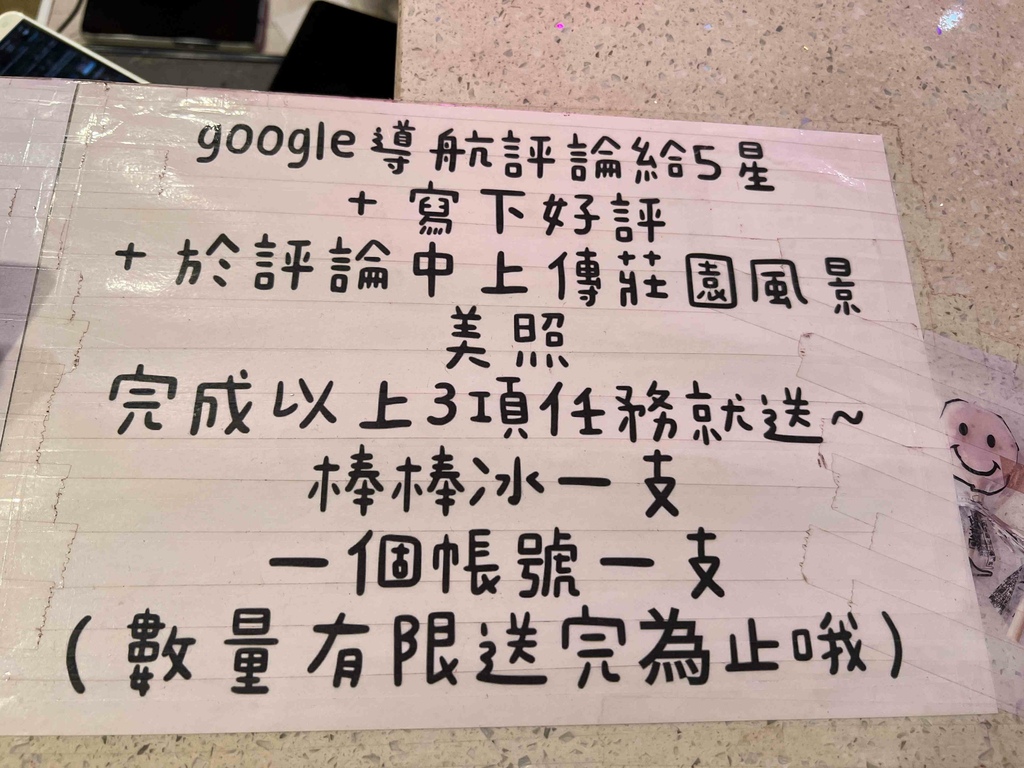 google導航評論給5星
+寫下好評
+於評論中上傳莊園風景
美照
完成以上3項任務就送~
棒棒冰一支
一個帳號一支
(數量有限送完為止哦)